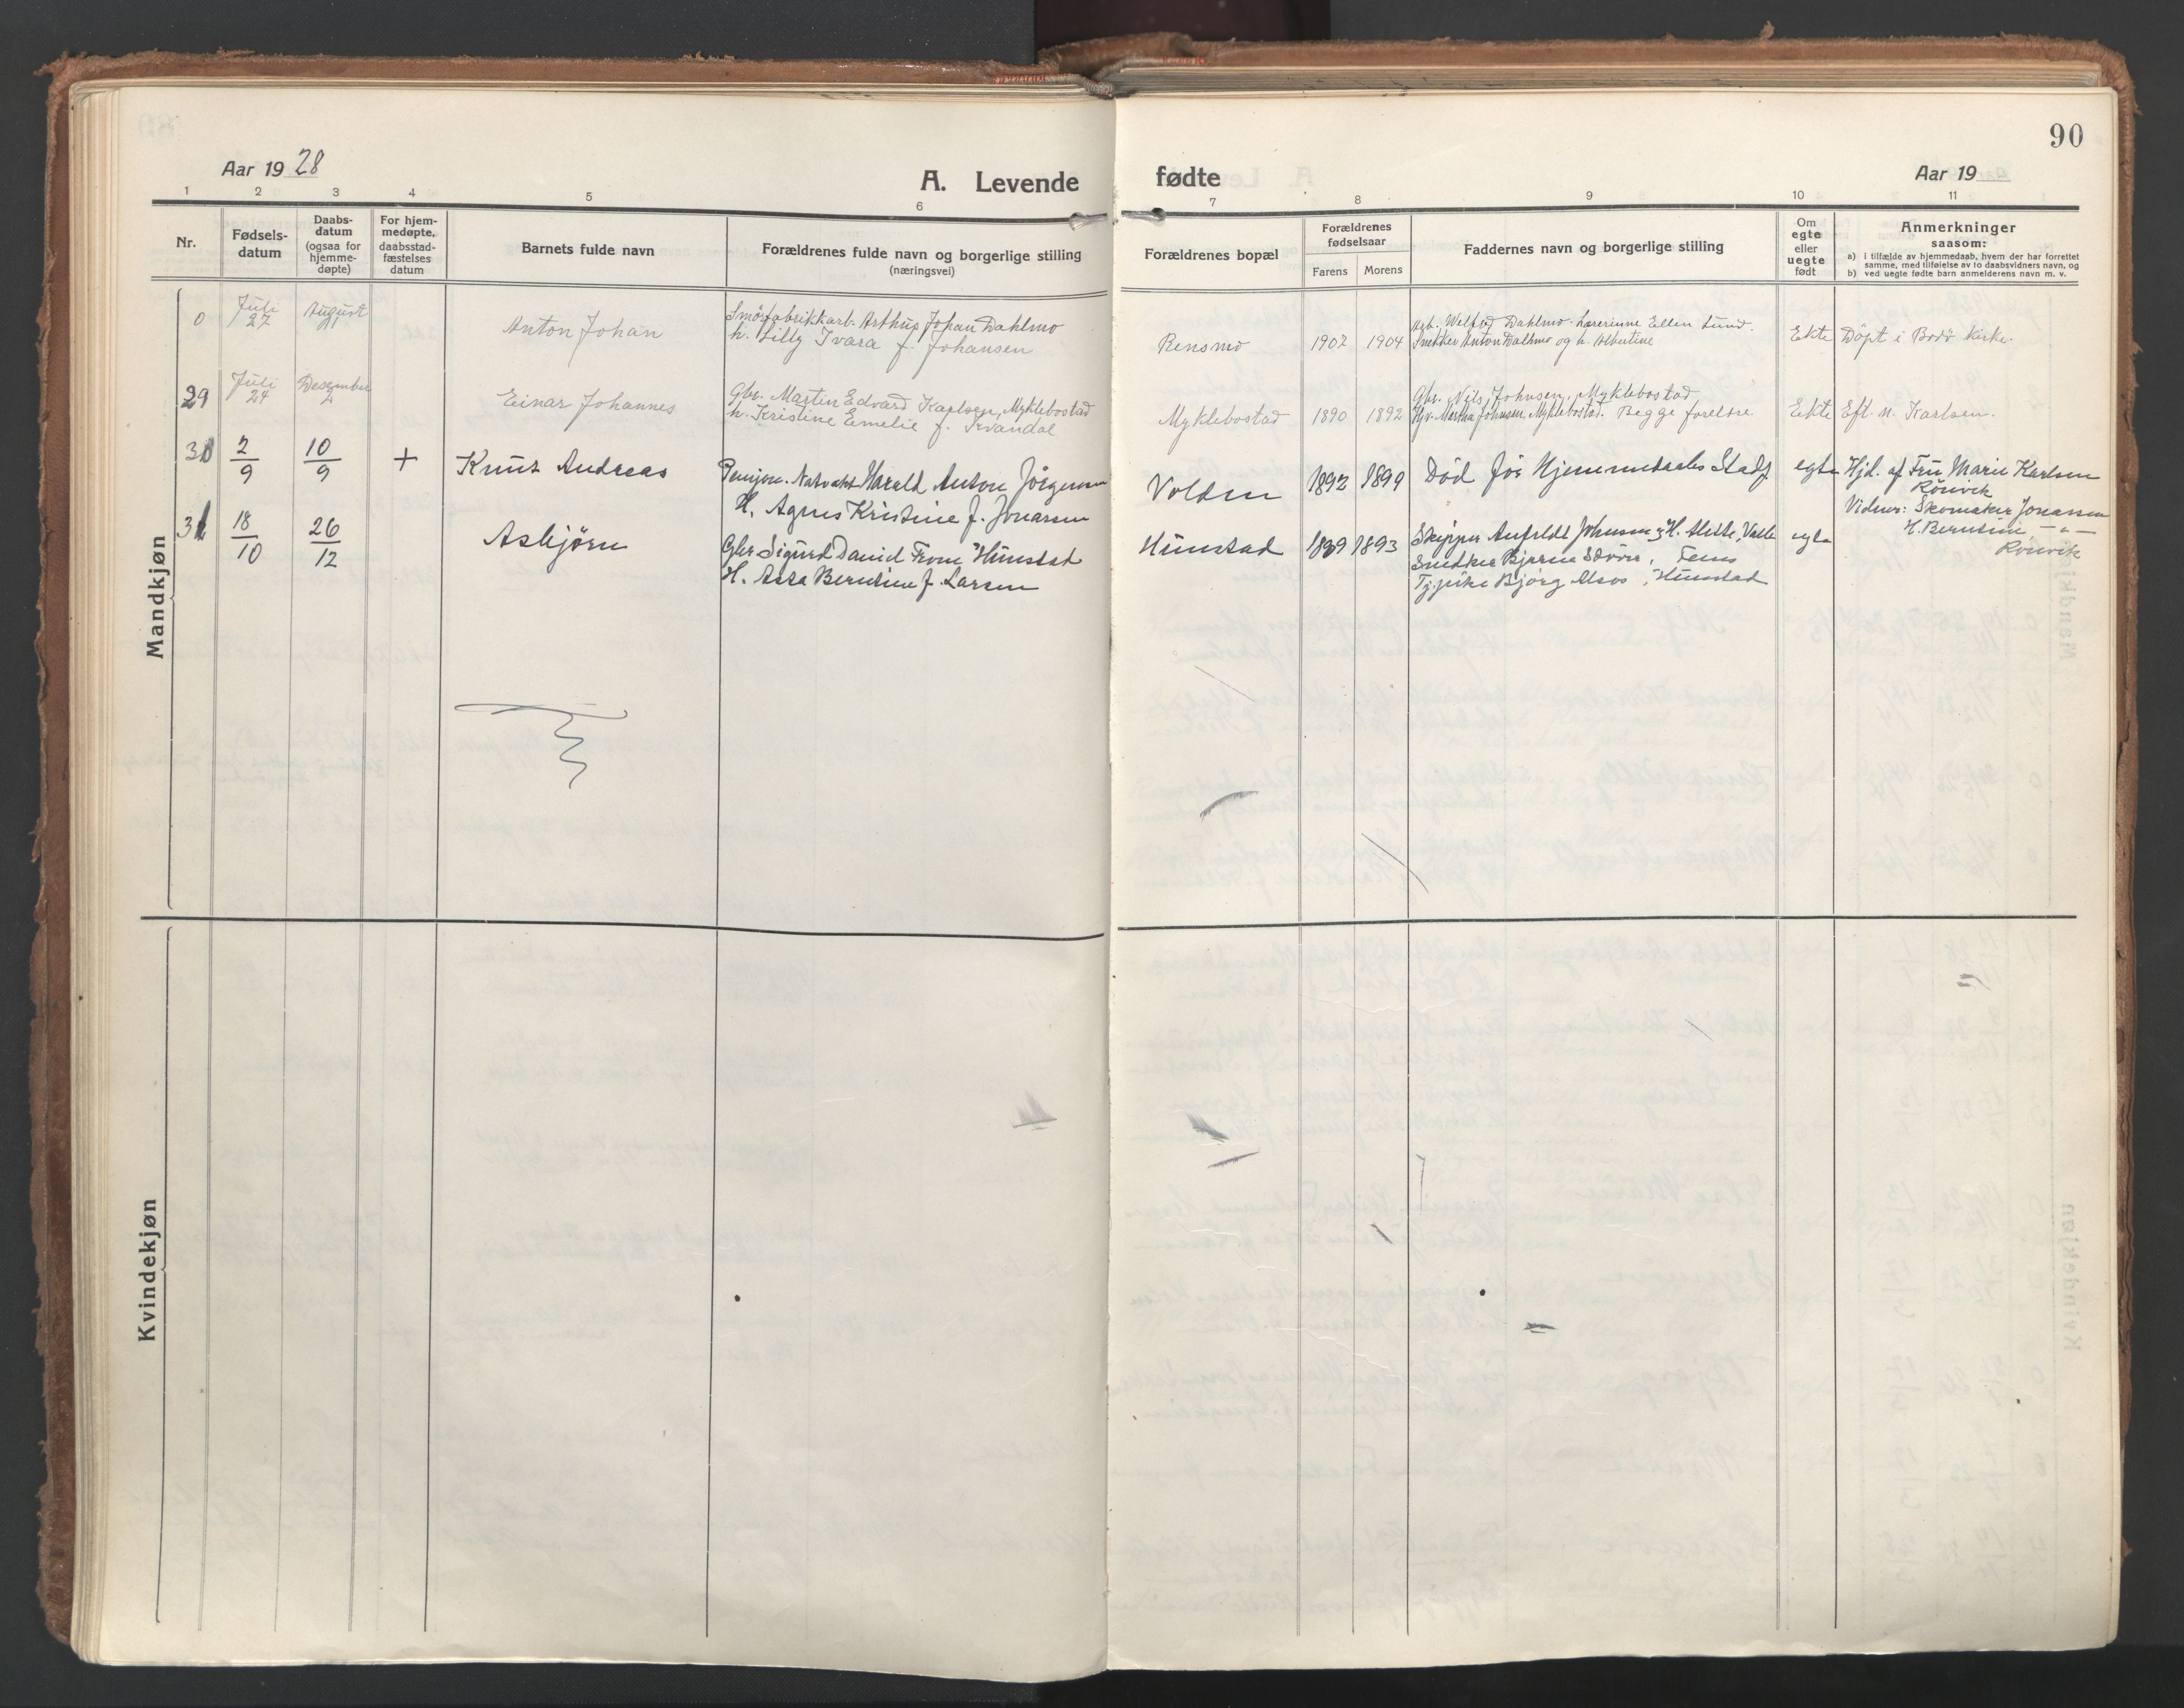 90
Aar 1928
A. Levende fødte
Aar 19
1 2 3 4 5 6 7 8 9 10 11
Nr.
Fødsels-
datum
Daabs-
datum
(ogsaa for
hjemme-
døpte)
For hjem-
medøpte,
daabsstad-
fæstelses
datum
Barnets fulde navn
Forældrenes fulde navn og borgerlige stilling
(næringsvei)
Forældrenes bopæl
Forældrenes
fødselsaar
Farens Morens
Faddernes navn og borgerlige stilling
Om
egte
eller
uegte
født
Anmerkninger
saasom:
a) i tilfælde av hjemmedaab, hvem der har forrettet
samme, med tilføielse av to daabsvidners navn, og
b) ved uegte fødte barn anmelderens navn m. v.
Mandkjøn
0
Juli
27
August
Anton Johan
Smörfabrikkarb. Arthur Johan Dahlmo
h. Lilly Ivara f. Johansen
Rensmo
1902 1904
Dahlmo. Lærerinne Ellen Lund.
Snekker Anton Dalhmo og h. Albertine
Ekte
Döpt i Bodö kirke.
29
Juli
24
Desember
2
Einar Johannes
Gbr. Martin Edvard Karlsen, Myklebostad
h. Kristine Emelie f. Kvandal
Myklebostad
1890 1892
Gbr. Nils Johnsen, Myklebostad
Martha Johnsen, Myklebostad. Begge foreldre
Ekte
Eft. m. Karlsen.
2
9
10
9
+
Knut Andreas
Harald Anton Jörgensen
H. Agnes Kristine f. Jonassen
Volden
1892 1899
Död för Hjemmedaabs Stadf.
egte
Hjd. af Fru Marie Karlsen
Rönvik
Vidner: Skomaker Jonassen
H. Berntine — " —
Rönvik
31
18
10
26
12
Asbjörn
Gbr Sigurd David From Hunstad
H. Asta Berntine f. Larsen
Hunstad
1893
Skipper Anfeldt Johnsen
Snedker Bjarne
Tj.pike Bjørg Alsos, Hunstad
egte
Kvindekjøn